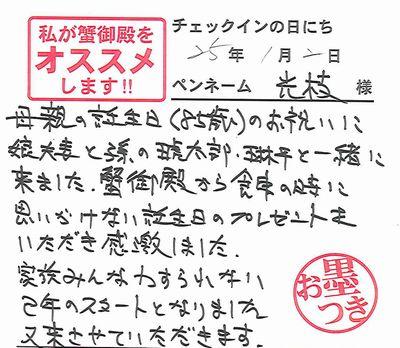 私が蟹御殿を
オススメ
します!!
チェックインの日にち
25年 1月 2日
ペンネーム 光枝 様
母親の誕生日(85歳)のお祝いに
娘夫妻と孫の琥太郎、琳平と一緒に
来ました。蟹御殿から食事の時に
思いがけない誕生日のプレゼントを
いただき感激しました。
家族みんなわすられない
巳年のスタートとなりました
又来させていただきます。
お墨つき